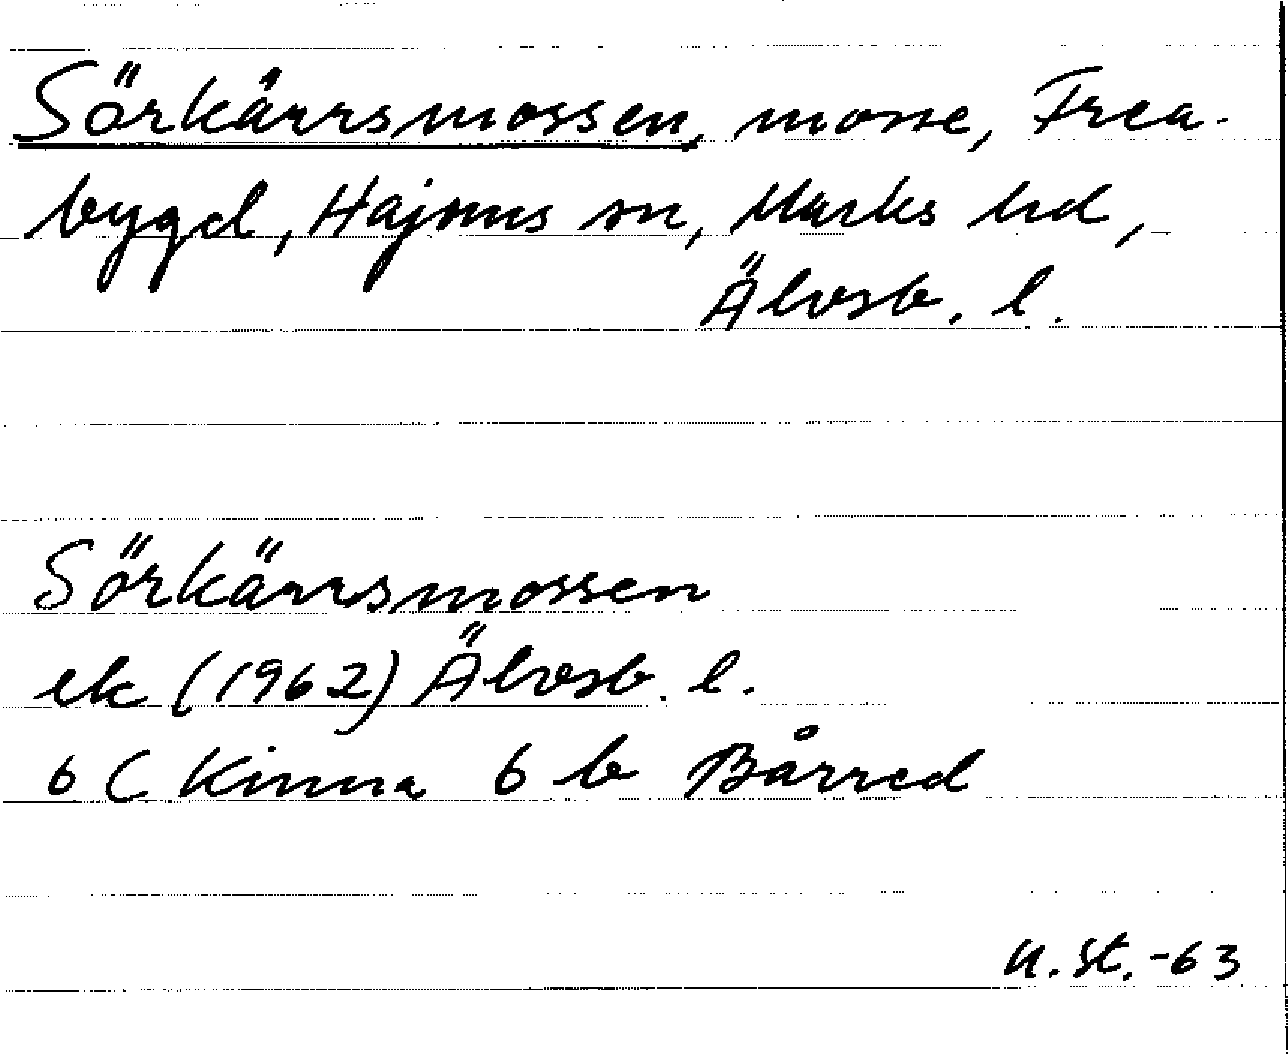 Sörkärrsmossen, mosse, Frea-
bygd, Hajoms sn, Marks hd,
Älvsb. l.
Sörkärrsmossen
ek (1962) Älvsb. l.
6 C Kinna 6 b Bårred
U. St. -63